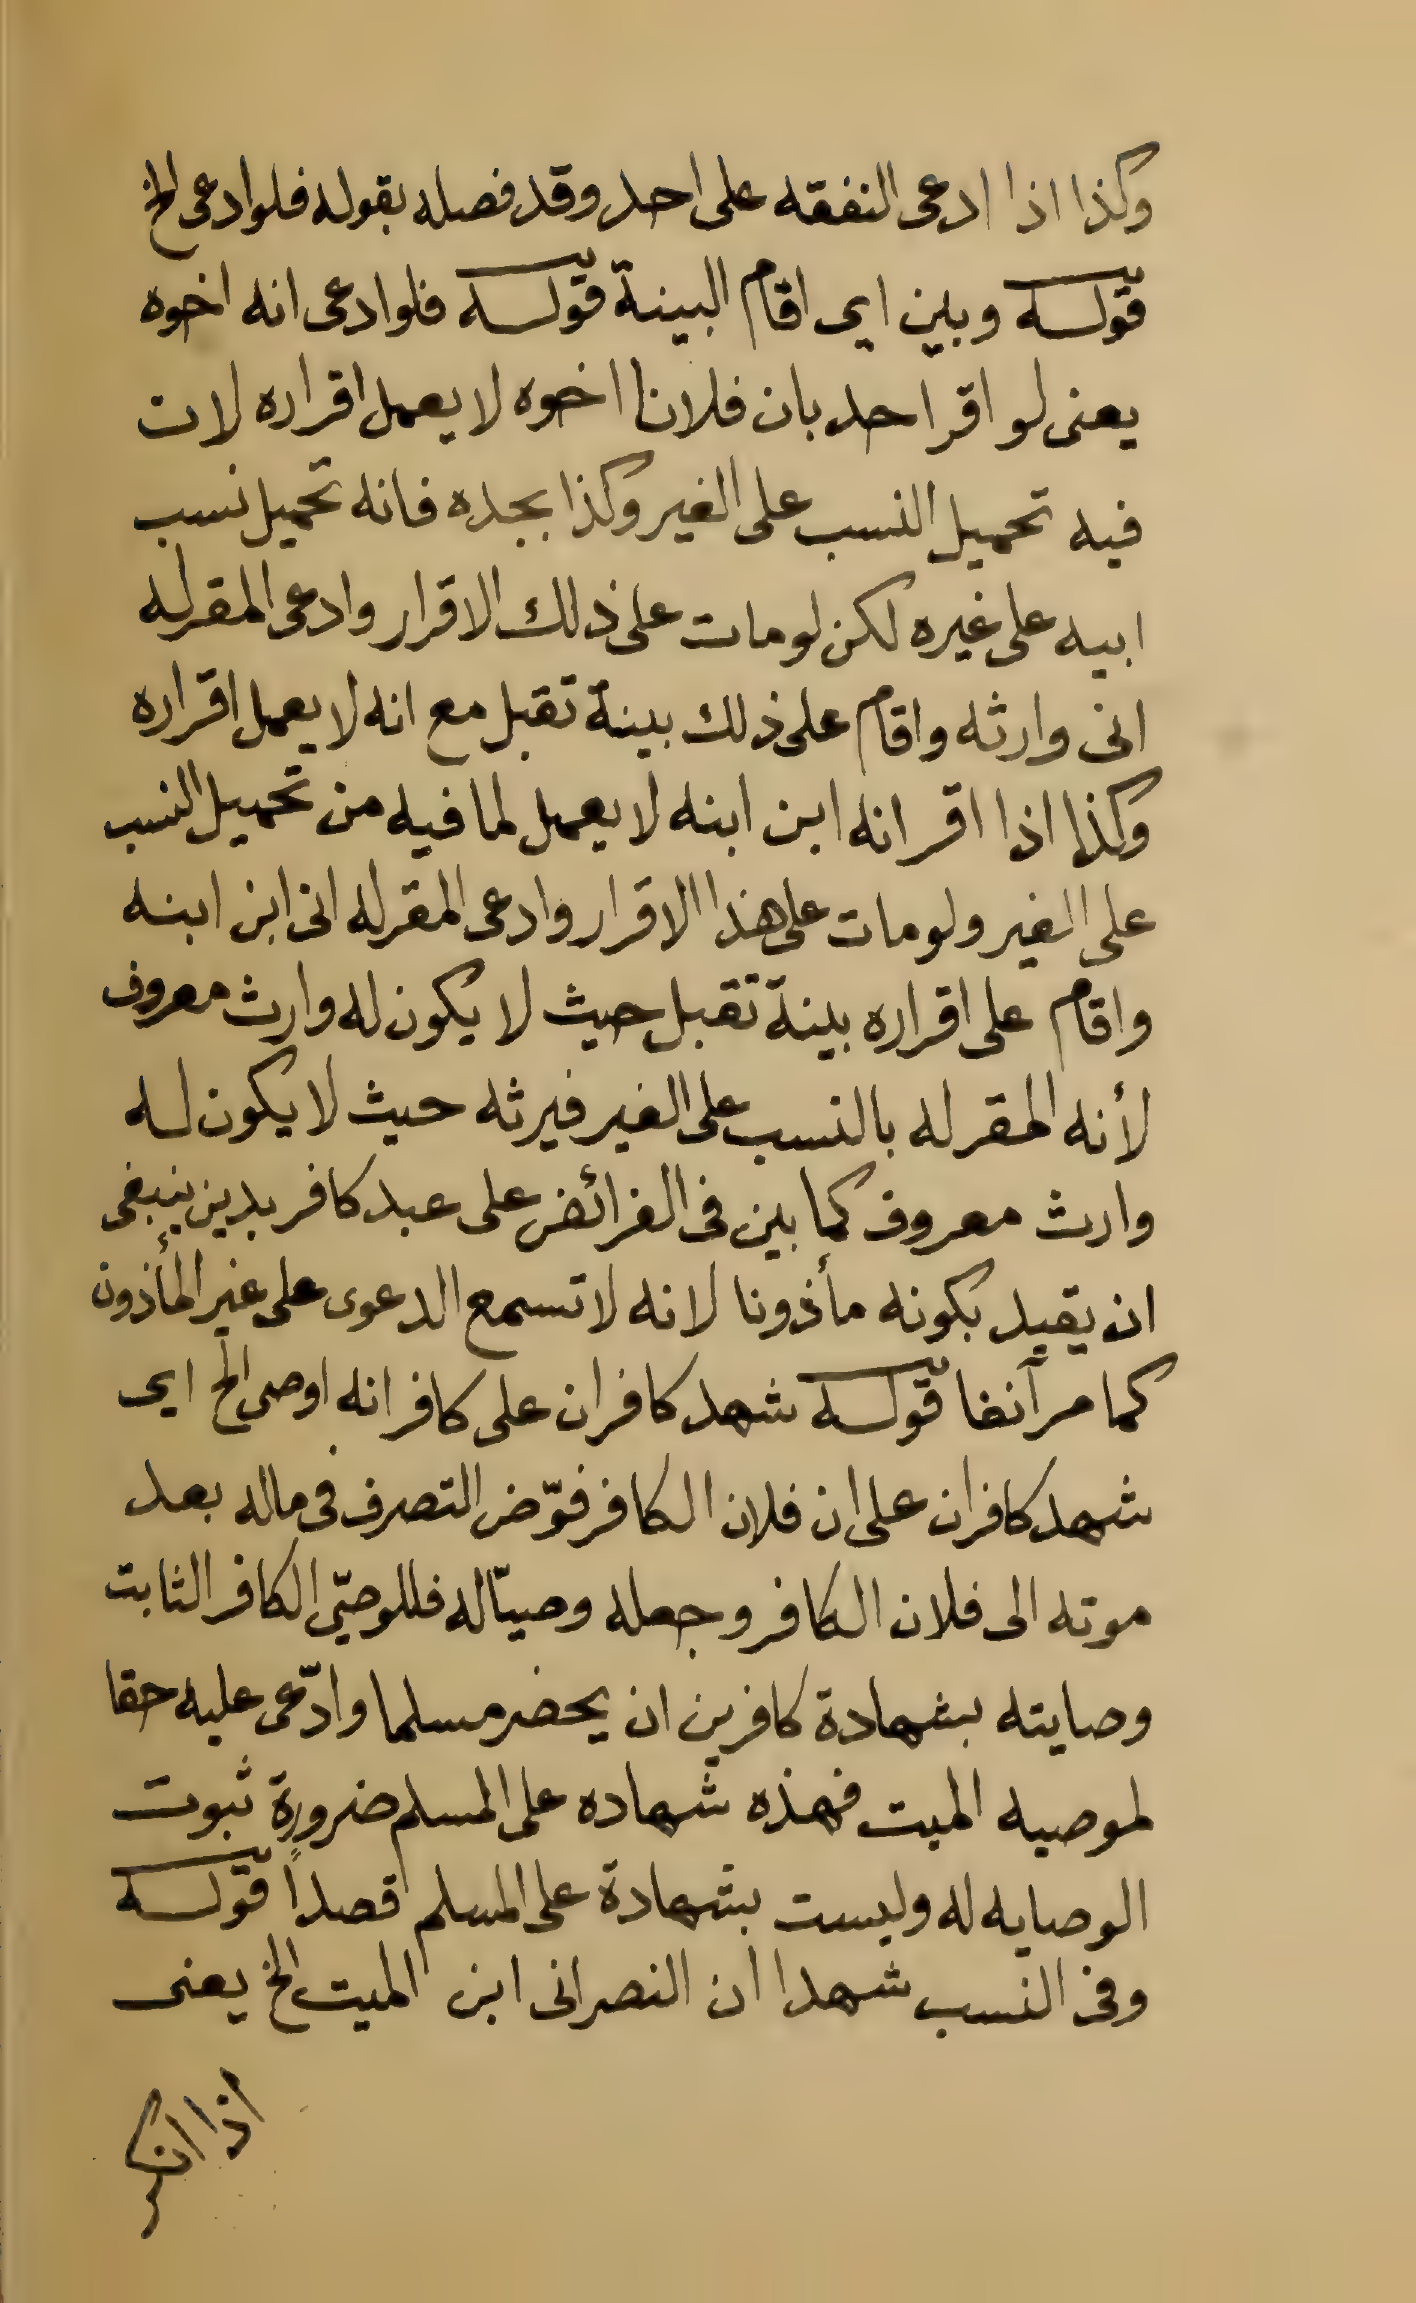 وكذا اذا ادعى النفقه على احد وقد فصله بقوله فلو ادعى الخ
قوله وبين اى اقام البينة قوله فلو ادعى انه اخوه
يعنى لو اقر احد بان فلانا اخوه لا يعمل اقراره لان
فيه تحميل النسب على الغير وكذا بجده فانه تحميل نسب
ابيه على غيره لكن لو مات على ذلك الاقرار وادعى المقر له
انى وارثه واقام على ذلك بينة تقبل مع انه لا يعمل اقراره
وكذا اذا اقر انه ابن ابنه لا يعمل لما فيه من تحميل النسب
على الغير ولو مات على هذا الاقرار وادعى المقر له انى ابن ابنه
واقام على اقراره بينة تقبل حيث لا يكون له وارث معروف
لأنه المقر له بالنسب على الغير فيرثه حيث لا يكون له
وارث معروف كما بين فى الفرائض على عبد كافر بدين ينبغى
ان يقيد بكونه مأذونا لانه لا تسمع الدعوى على غير المأذون
كما مر آنفا قوله شهد كافران على كافر انه اوصى الخ اى
شهد كافران على ان فلان الكافر فوّض التصرف فى ماله بعد
موته الى فلان الكافر وجعله وصيّا له فللوصىّ الكافر الثابت
وصايته بشهادة كافرين ان يحضر مسلما وادّعى عليه حقا
لموصيه الميت فهذه شهاده على المسلم ضرورة ثبوت
الوصايه له وليست بشهادة على المسلم قصداً قوله
وفى النسب شهدا ان النصرانى ابن الميت الخ يعنى
اذا انكر